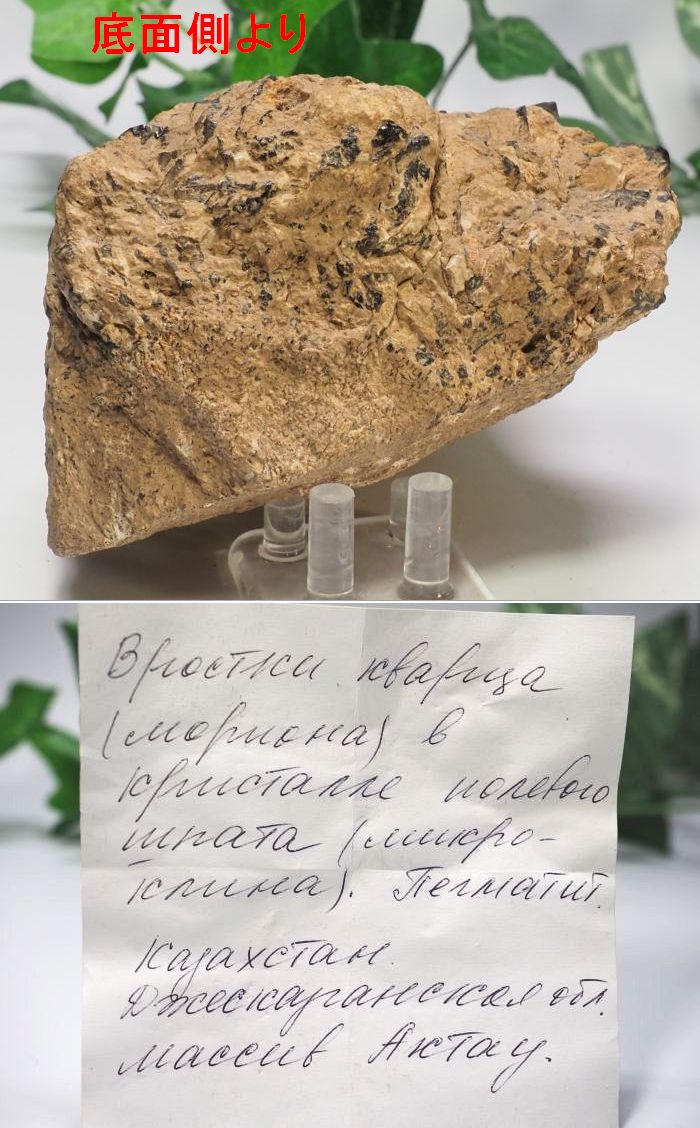 底面側より
Вростки кварца
(мориона) в
кристалле полевого
шпата (микро-
клина). Пегматит.
Казахстан.
Джескаганская обл.
массив Актау.